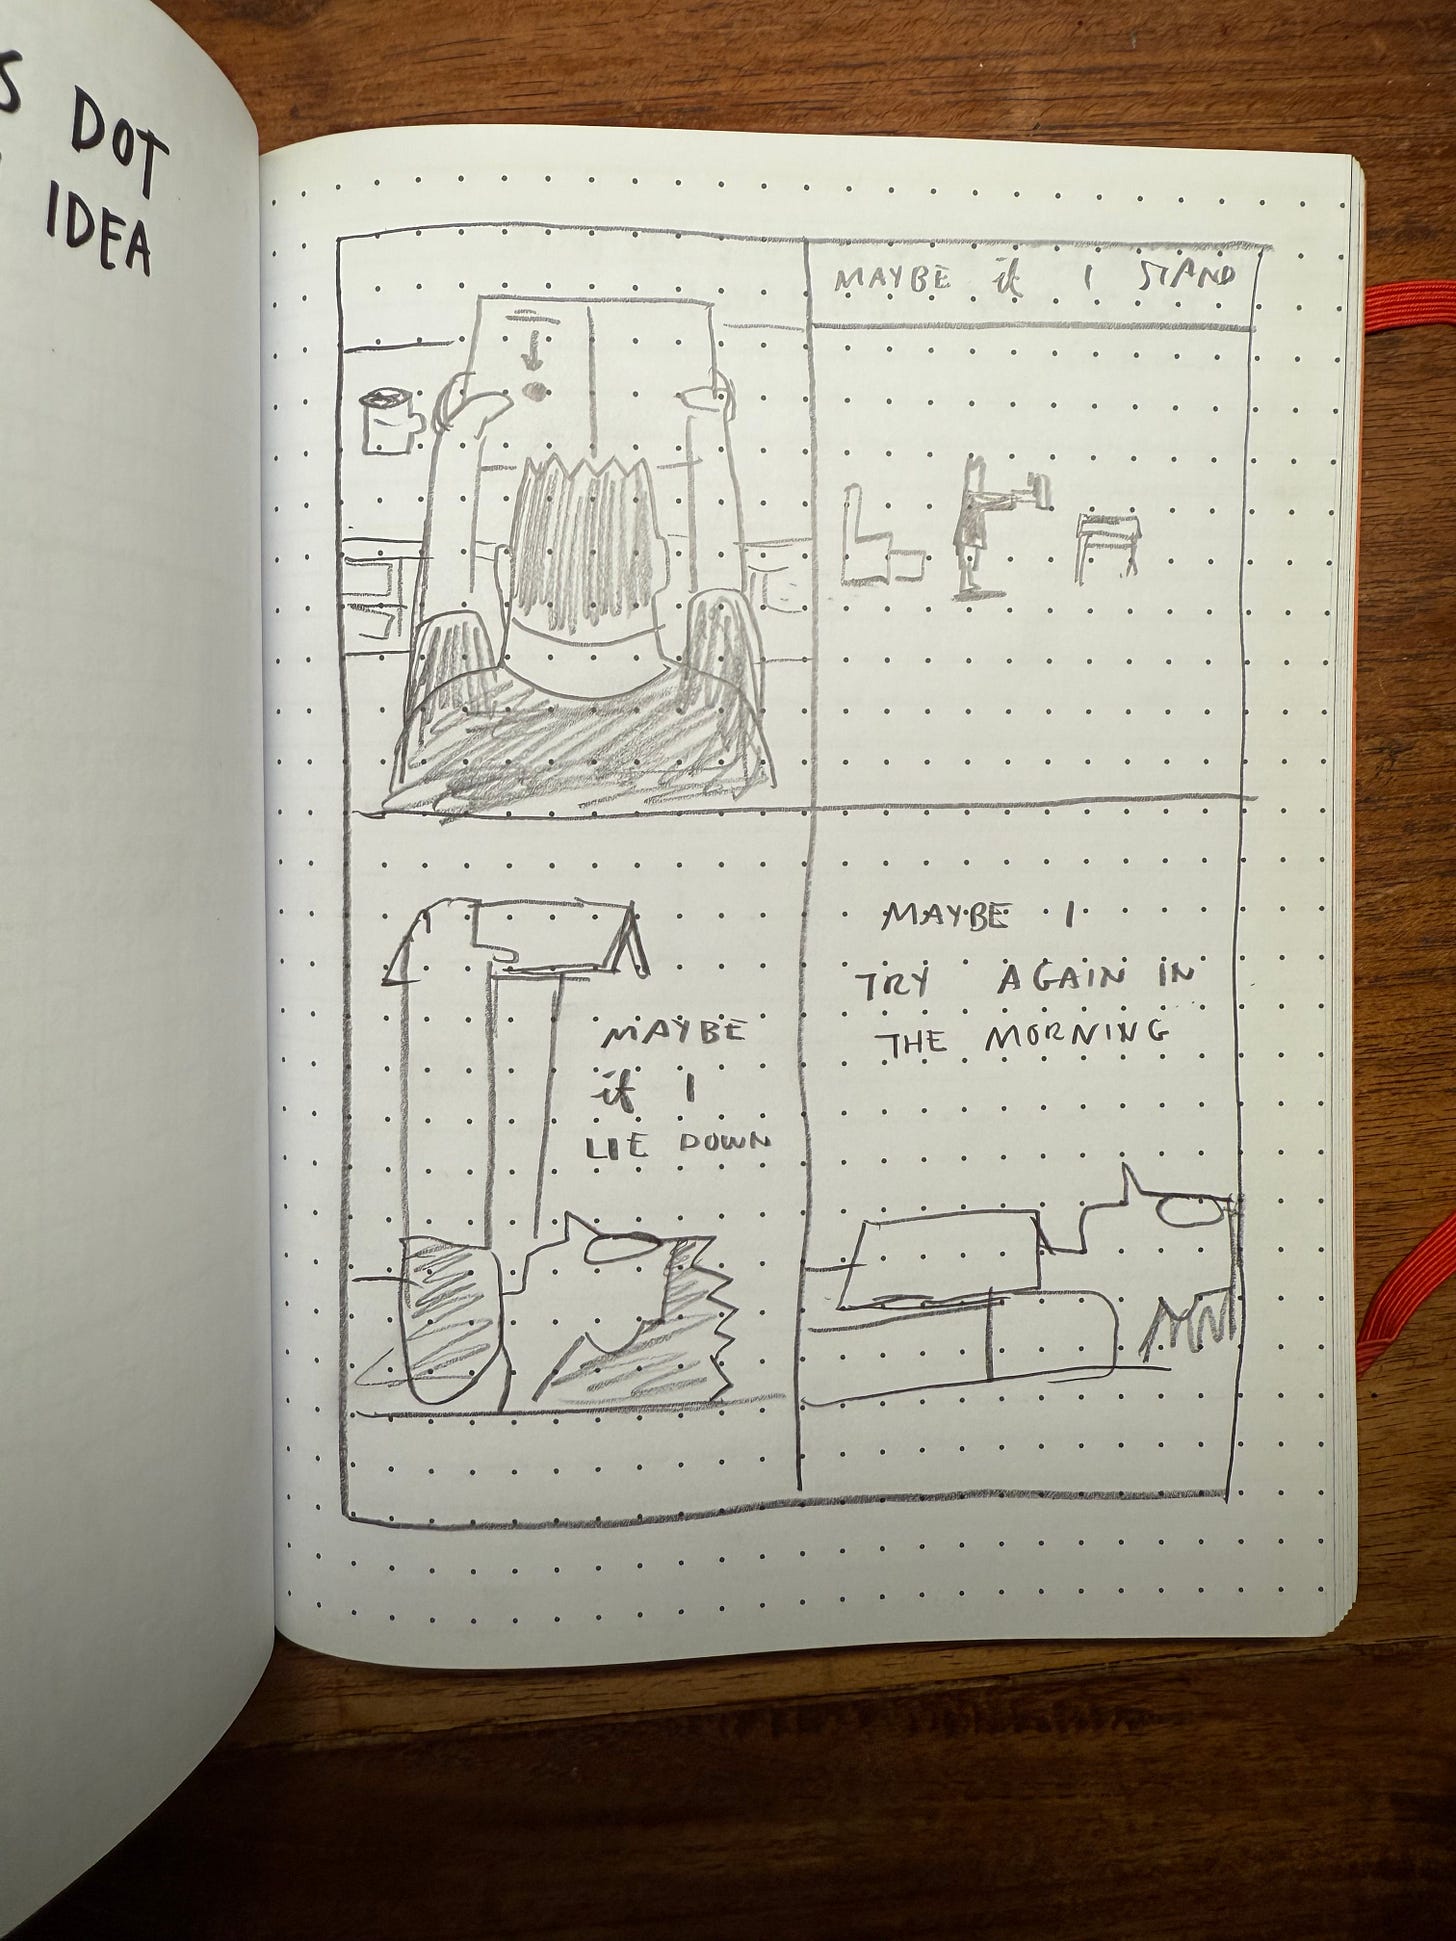 DOT
IDEA
MAYBE if I STAND
MAYBE
if I
LIE DOWN
MAYBE I
TRY AGAIN IN
THE MORNING